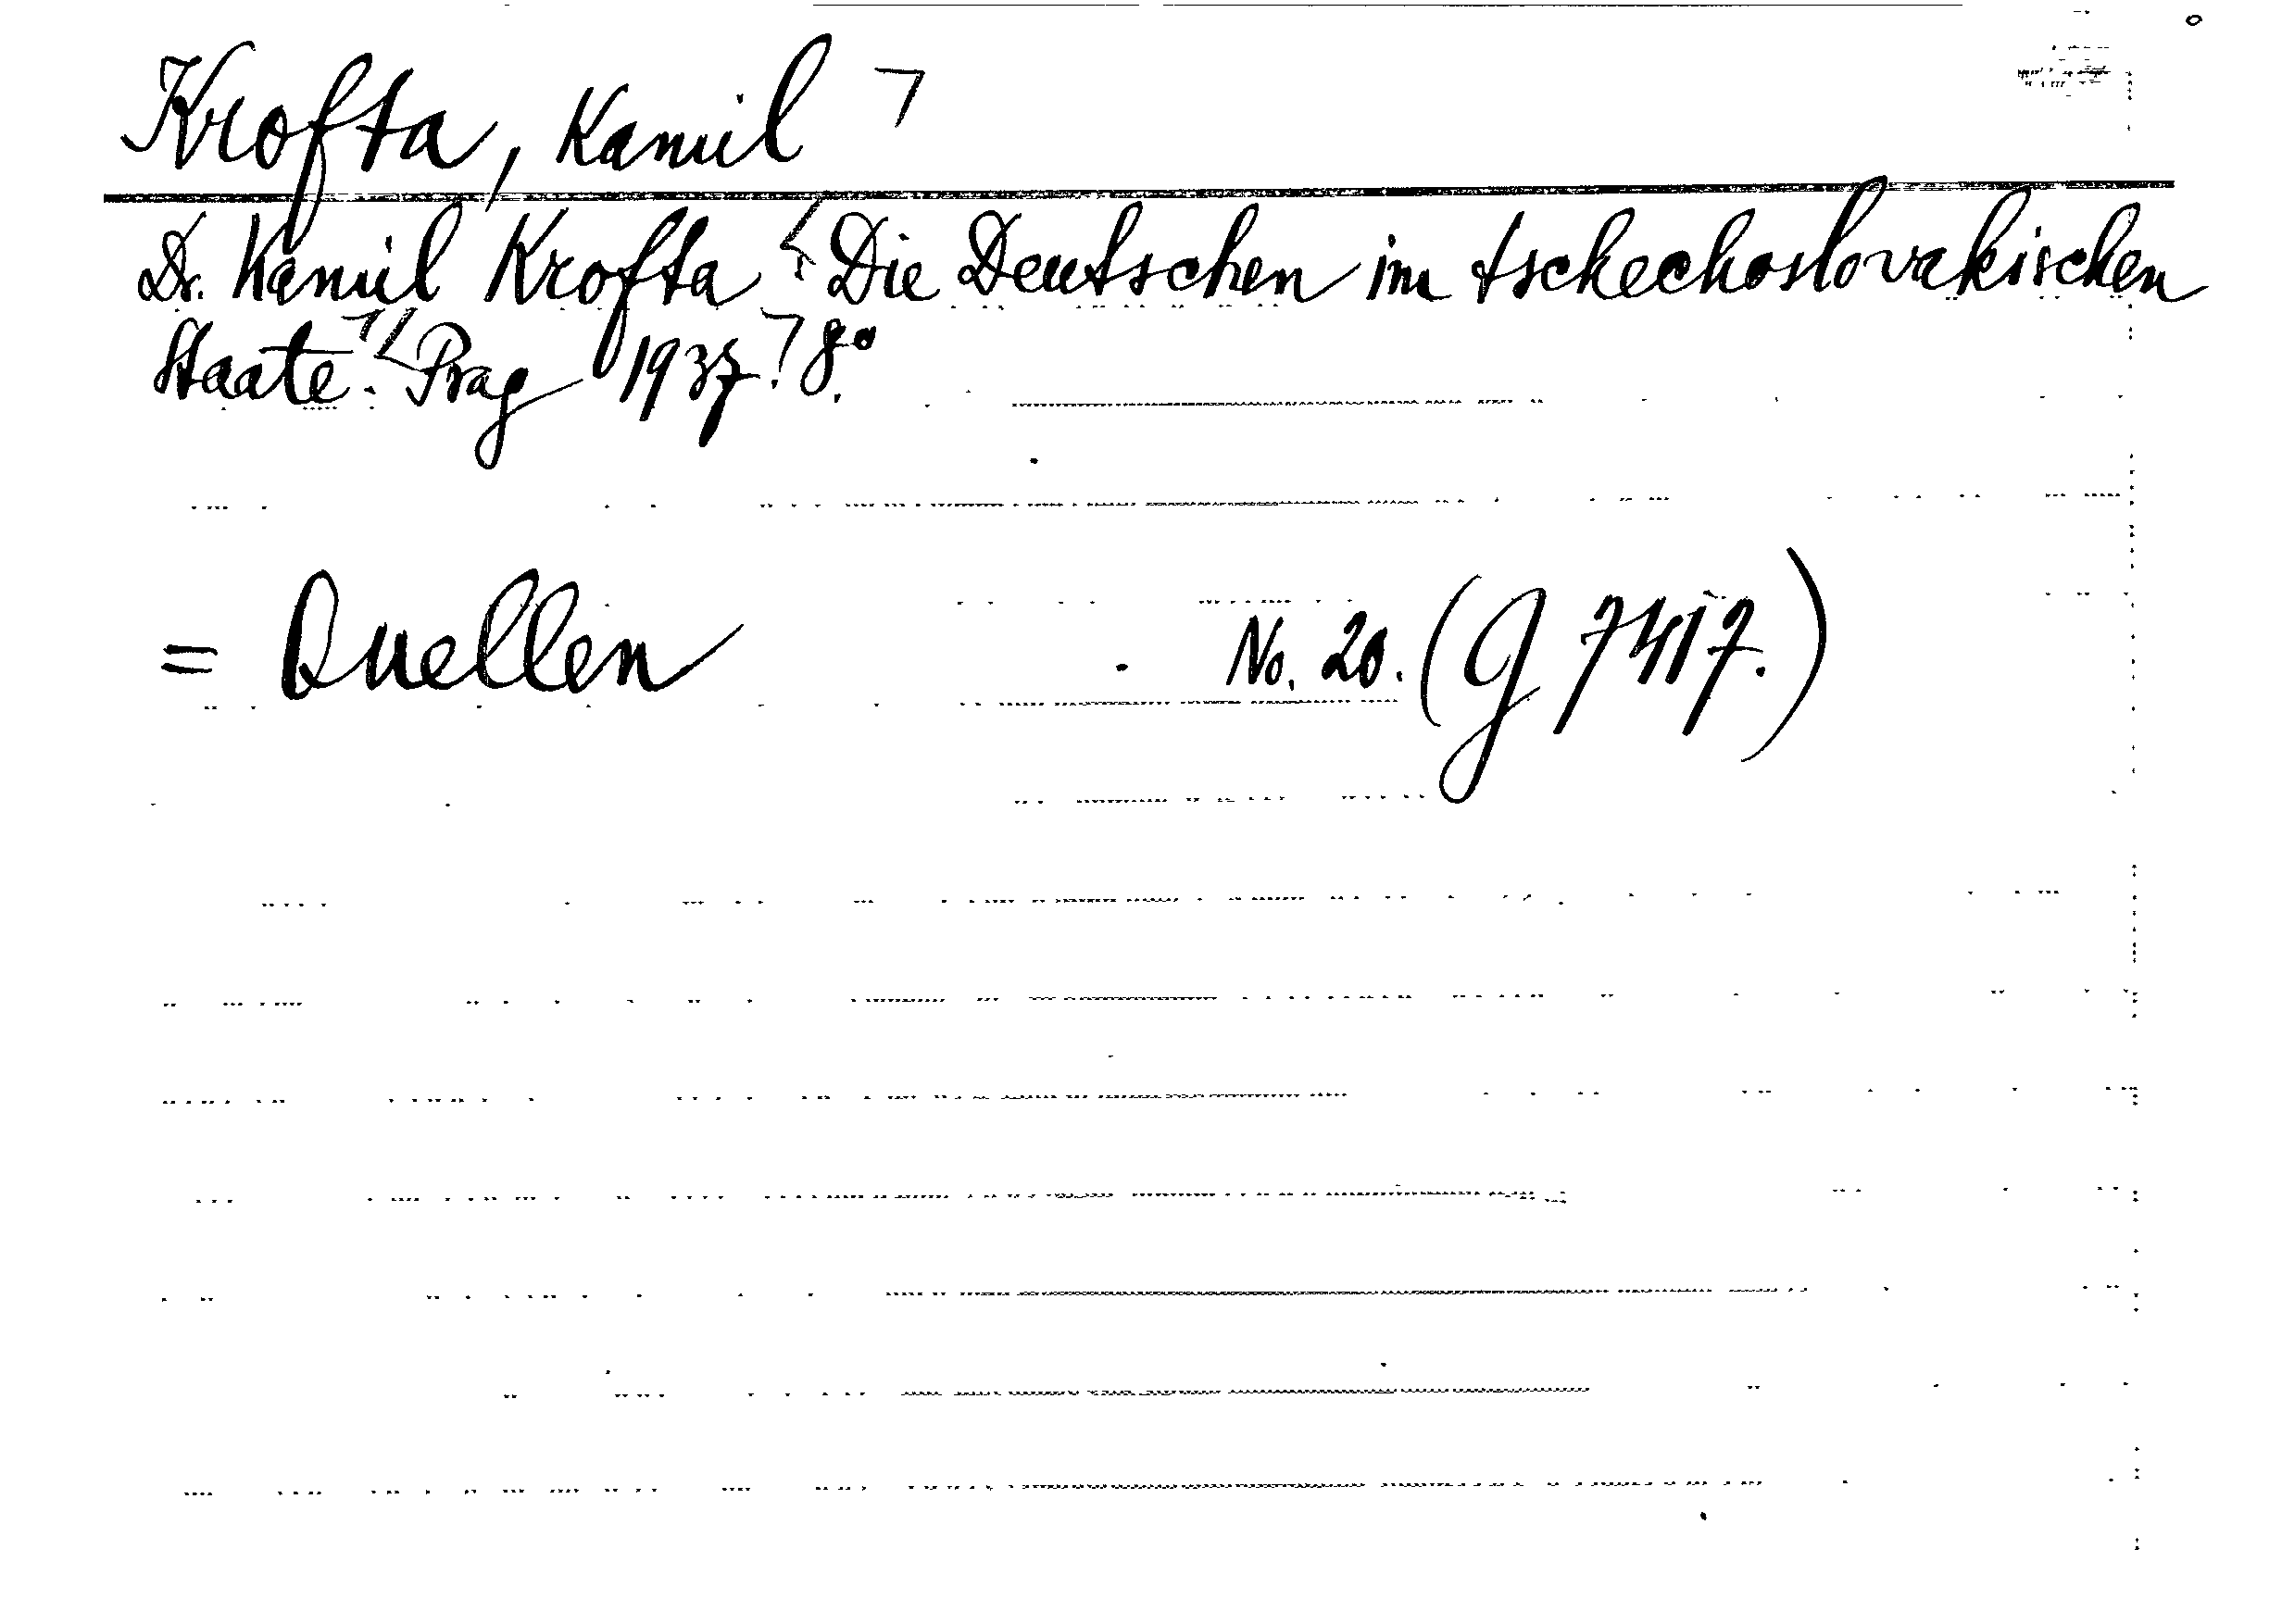 Krofta, Kamil
Dr. Kamil Krofta Die Deutschen im tschechoslovakischen
Staate. Prag 1937. 8°.
= Quellen . No. 20. (G 7417.)